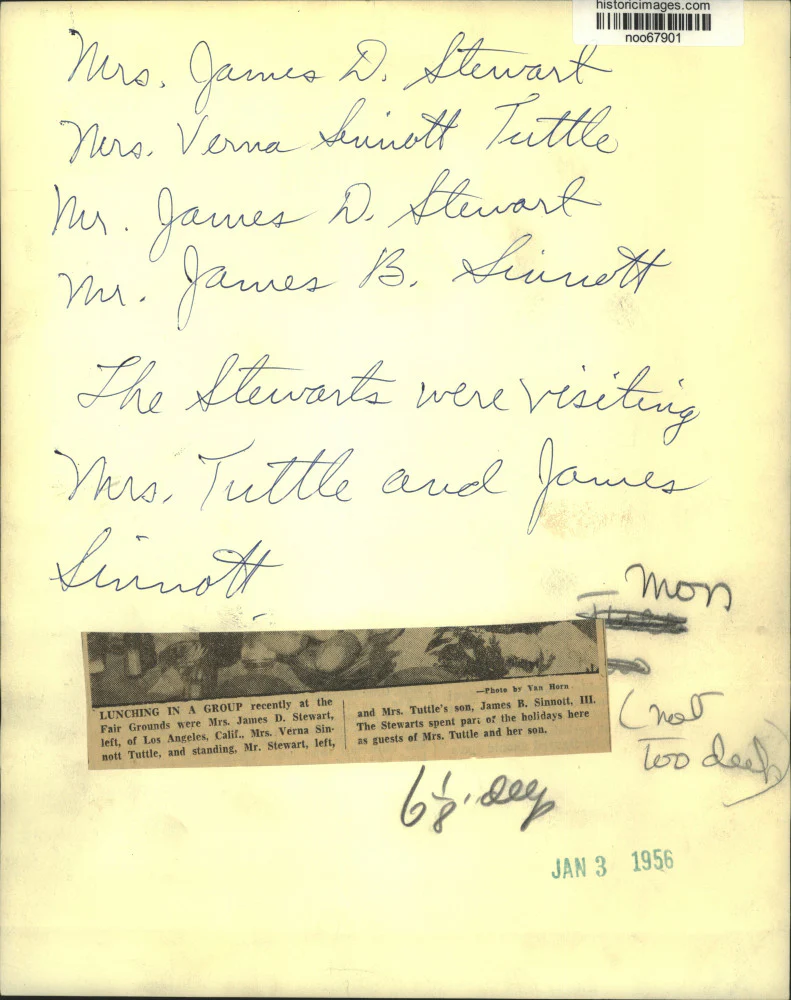 historicimages.com
noo67901
Mrs. James D. Stewart
Mrs. Verna Sinnott Tuttle
Mr. James D. Stewart
Mr. James B. Sinnott
The Stewarts were visiting
Mrs. Tuttle and James
Sinnott
Mon
(not
too deep)
—Photo by Van Horn
LUNCHING IN A GROUP recently at the
Fair Grounds were Mrs. James D. Stewart,
left, of Los Angeles, Calif., Mrs. Verna Sin-
nott Tuttle, and standing, Mr. Stewart, left,
and Mrs. Tuttle's son, James B. Sinnott, III.
The Stewarts spent part of the holidays here
as guests of Mrs. Tuttle and her son.
6 1/8
JAN 3 1956